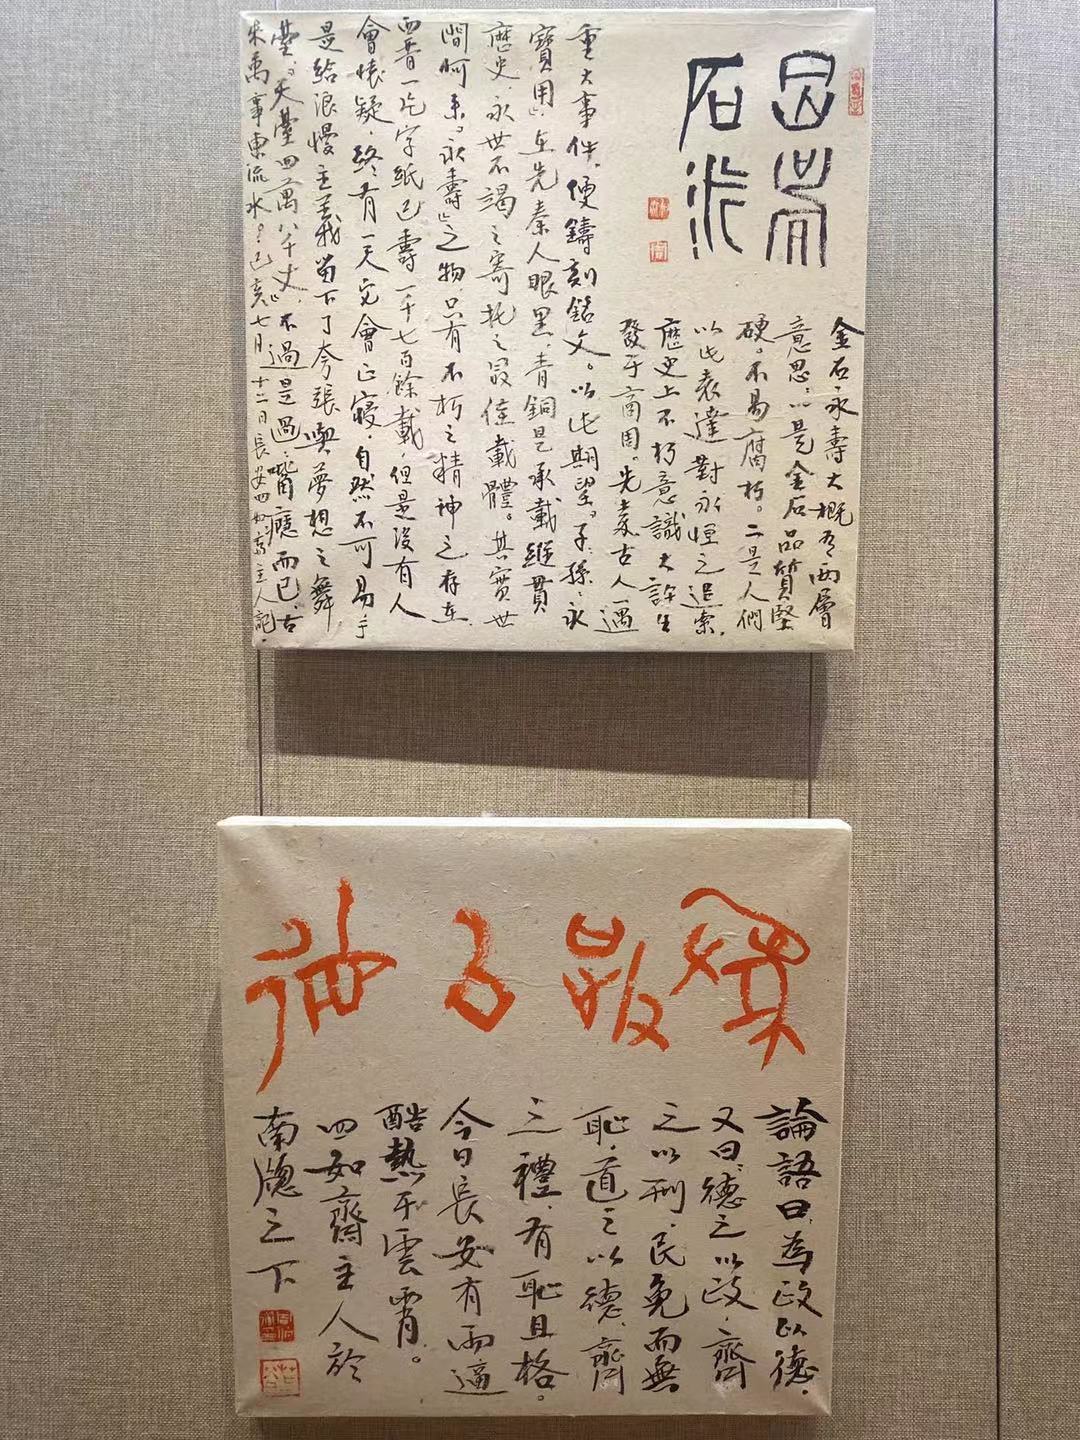 金石永壽大概有兩層
意思。一是金石品質堅
硬。不易腐朽。二是人們
以此表達對永恒之追索。
歷史上不朽意識大許生
發于商周。先秦古人一遇
重大事件，便鑄刻銘文。以此期望。子孫永
寶用」在先秦人眼里，青銅是承載縱貫
歷史，永世不竭之寄托之最佳載體。其實世
間何來。永壽」之物，只有不朽之精神之存在
西晉一片字紙已壽一千七百餘載，但是沒有人
會懷疑，終有一天它會正寢，自然不可易乎
是給浪漫主義留下了夸張與夢想之舞
臺。天臺四萬八千丈，不過是過過嘴癮而已。古
來萬事東流水。己亥七月十二日長安四如齋主人記。
論語曰，為政以德，
又曰，德之以政，齊
之以刑，民免而無
恥，道之以德，齊
之禮，有恥且格。
今日長安有雨逼
酷熱于雲霄。
四如齋主人於
南牕之下